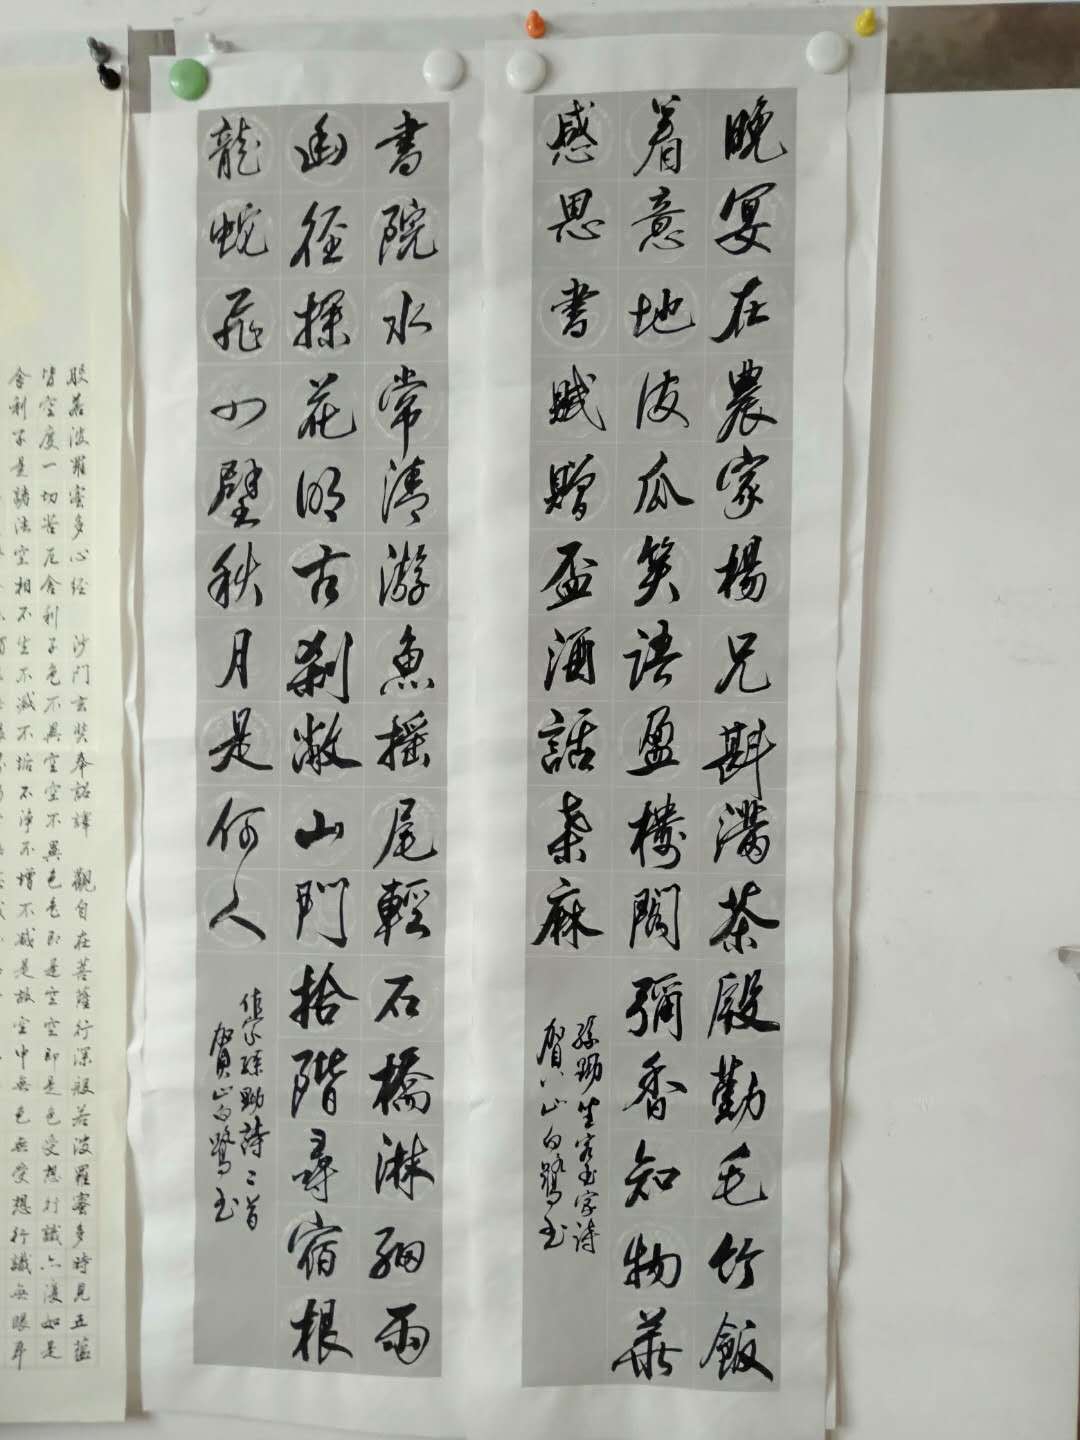 晚宴在農家楊兄斟滿茶殷勤毛竹飯
着意地皮瓜笑語盈樓閣彌香知物華
感恩書賦贈盃酒話桑麻
書院水常清游魚搖尾輕石橋淋細雨
幽徑探花明古刹敞山門拾階尋宿根
龍蛇飛四壁秋月是何人
詩二首
賀山白鷺書
賀山白鷺書
般若波羅蜜多心經 沙門玄奘奉詔譯 觀自在菩薩行深般若波羅蜜多時見五蘊
皆空度一切苦厄舍利子色不異空空不異色色即是空空即是色受想行識亦復如是
舍利子是諸法空相不生不滅不垢不淨不增不減是故空中無色無受想行識無眼耳